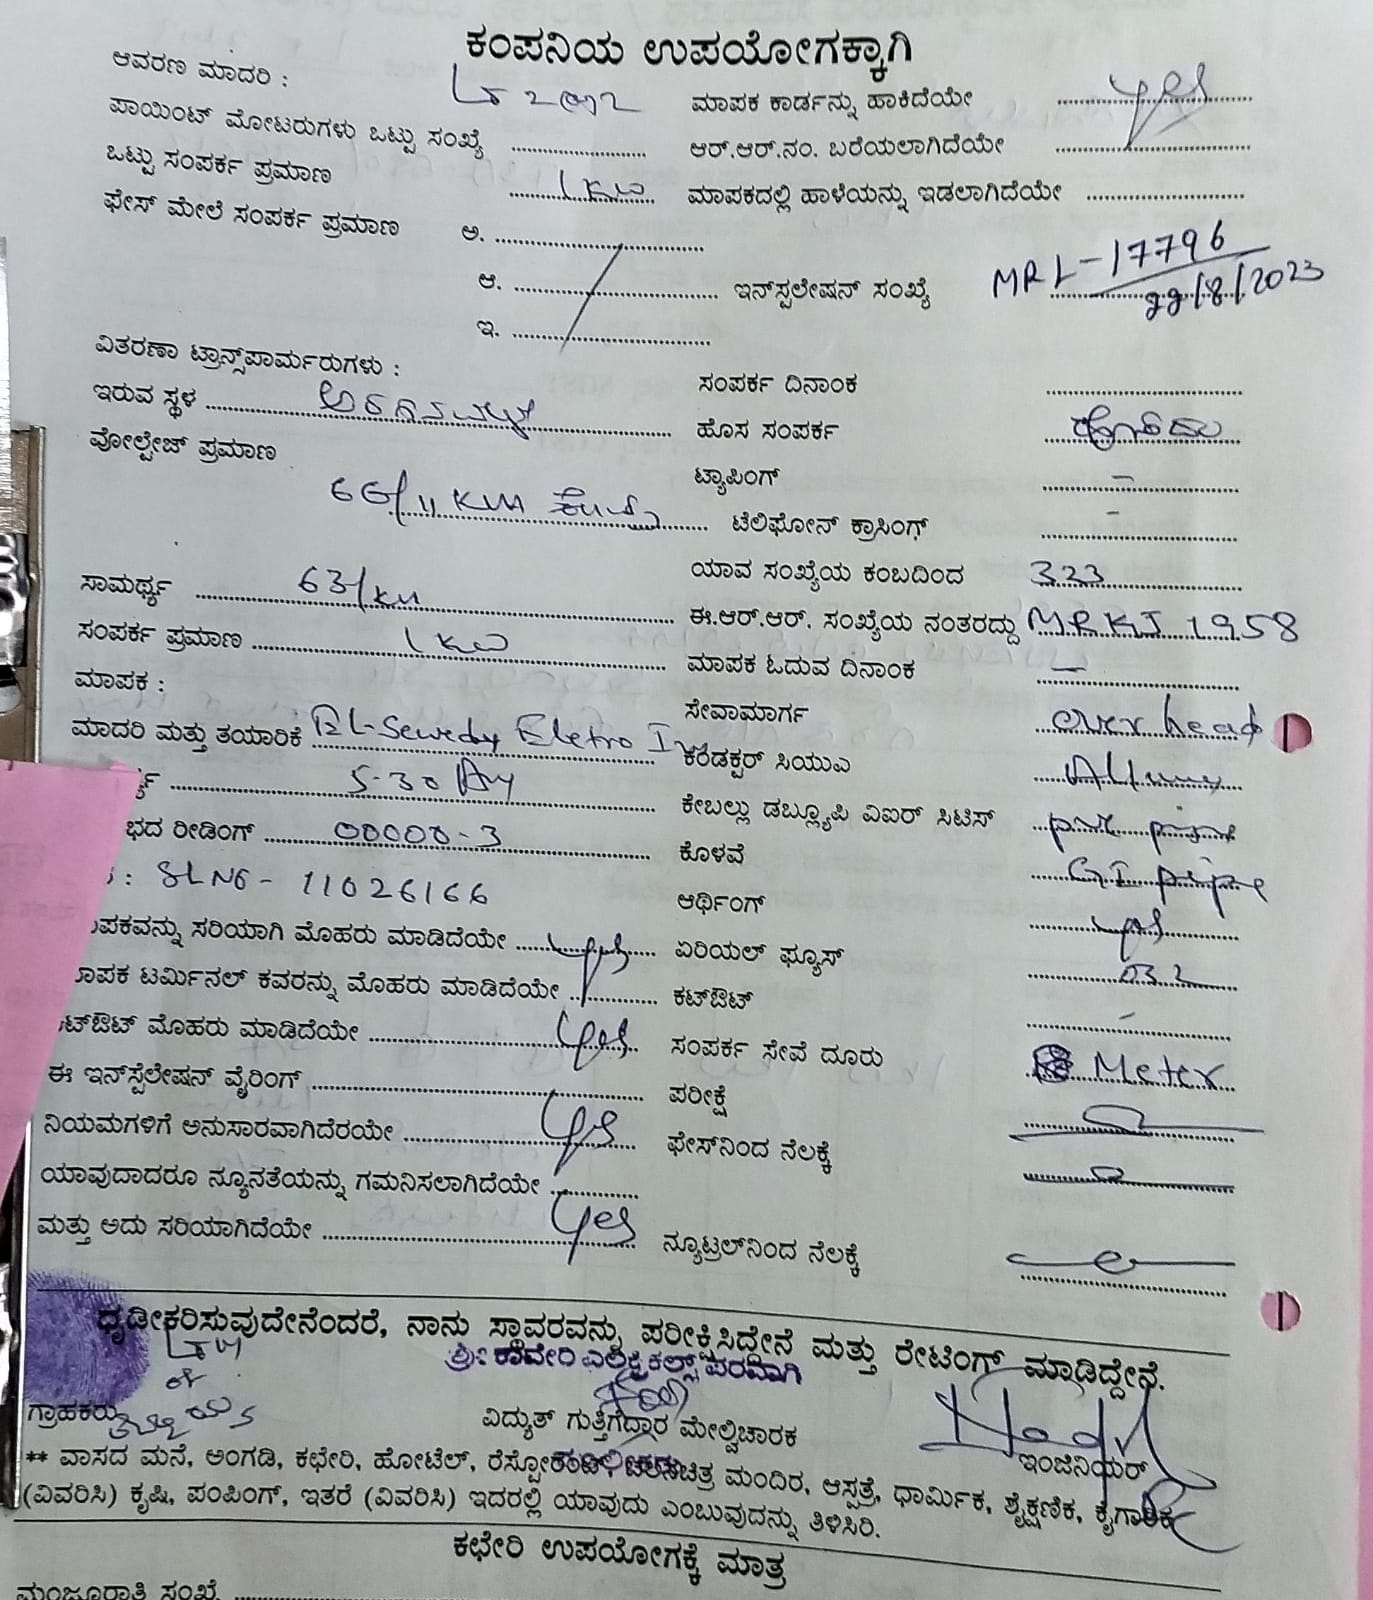 ಕಂಪನಿಯ ಉಪಯೋಗಕ್ಕಾಗಿ
ಆವರಣ ಮಾದರಿ :
ಮಾಪಕ ಕಾರ್ಡನ್ನು ಹಾಕಿದೆಯೇ yes
ಪಾಯಿಂಟ್ ಮೋಟರುಗಳು ಒಟ್ಟು ಸಂಖ್ಯೆ
ಆರ್.ಆರ್.ನಂ. ಬರೆಯಲಾಗಿದೆಯೇ
ಒಟ್ಟು ಸಂಪರ್ಕ ಪ್ರಮಾಣ 1kw
ಮಾಪಕದಲ್ಲಿ ಹಾಳೆಯನ್ನು ಇಡಲಾಗಿದೆಯೇ
ಫೇಸ್ ಮೇಲೆ ಸಂಪರ್ಕ ಪ್ರಮಾಣ ಅ.
ಆ.
ಇನ್‌ಸ್ಪಲೇಷನ್ ಸಂಖ್ಯೆ MRL-17796
22/8/2023
ಇ.
ವಿತರಣಾ ಟ್ರಾನ್ಸ್‌ಪಾರ್ಮರುಗಳು :
ಸಂಪರ್ಕ ದಿನಾಂಕ
ಇರುವ ಸ್ಥಳ
ಹೊಸ ಸಂಪರ್ಕ ಹೌದು
ವೋಲ್ಟೇಜ್ ಪ್ರಮಾಣ 66/11 KVA
ಟ್ಯಾಪಿಂಗ್ -
ಟೆಲಿಫೋನ್ ಕ್ರಾಸಿಂಗ್ -
ಸಾಮರ್ಥ್ಯ 63/KV
ಯಾವ ಸಂಖ್ಯೆಯ ಕಂಬದಿಂದ 323
ಈ.ಆರ್.ಆರ್. ಸಂಖ್ಯೆಯ ನಂತರದ್ದು MRKJ 1958
ಸಂಪರ್ಕ ಪ್ರಮಾಣ 1kw
ಮಾಪಕ ಓದುವ ದಿನಾಂಕ -
ಮಾಪಕ :
ಸೇವಾಮಾರ್ಗ over head
ಮಾದರಿ ಮತ್ತು ತಯಾರಿಕೆ EL-Sewedy Eletro
ಕಂಡಕ್ಟರ್ ಸಿಯುಎ
5-30 Amp
ಕೇಬಲ್ಲು ಡಬ್ಲ್ಯೂಪಿ ವಿಐರ್ ಸಿಟಿಸ್ pvc pipe
ಭದ ರೀಡಿಂಗ್ 00000-3
ಕೊಳವೆ GI pipe
: SLNO - 11026166
ಆರ್ಥಿಂಗ್ yes
ಪಕವನ್ನು ಸರಿಯಾಗಿ ಮೊಹರು ಮಾಡಿದೆಯೇ yes
ಏರಿಯಲ್ ಫ್ಯೂಸ್
ಾಪಕ ಟರ್ಮಿನಲ್ ಕವರನ್ನು ಮೊಹರು ಮಾಡಿದೆಯೇ
ಕಟ್‌ಔಟ್ -
ಟ್‌ಔಟ್ ಮೊಹರು ಮಾಡಿದೆಯೇ yes
ಸಂಪರ್ಕ ಸೇವೆ ದೂರು Meter
ಈ ಇನ್‌ಸ್ಪೆಲೇಷನ್ ವೈರಿಂಗ್
ಪರೀಕ್ಷೆ
ನಿಯಮಗಳಿಗೆ ಅನುಸಾರವಾಗಿದೆರಯೇ yes
ಫೇಸ್‌ನಿಂದ ನೆಲಕ್ಕೆ
ಯಾವುದಾದರೂ ನ್ಯೂನತೆಯನ್ನು ಗಮನಿಸಲಾಗಿದೆಯೇ
ಮತ್ತು ಅದು ಸರಿಯಾಗಿದೆಯೇ yes
ನ್ಯೂಟ್ರಲ್‌ನಿಂದ ನೆಲಕ್ಕೆ
ಧೃಡೀಕರಿಸುವುದೇನೆಂದರೆ, ನಾನು ಸ್ಥಾವರವನ್ನು ಪರೀಕ್ಷಿಸಿದ್ದೇನೆ ಮತ್ತು ರೇಟಿಂಗ್ ಮಾಡಿದ್ದೇನೆ.
LTM
of
ಶ್ರೀ ಕಾವೇರಿ ಎಲೆಕ್ಟ್ರಿಕಲ್ಸ್ ಪರವಾಗಿ
ಗ್ರಾಹಕರು
ವಿದ್ಯುತ್ ಗುತ್ತಿಗೆದ್ದಾರ ಮೇಲ್ವಿಚಾರಕ
ಇಂಜಿನಿಯರ್
** ವಾಸದ ಮನೆ, ಅಂಗಡಿ, ಕಛೇರಿ, ಹೋಟೆಲ್, ಮಂದಿರ, ಆಸ್ಪತ್ರೆ, ಧಾರ್ಮಿಕ, ಶೈಕ್ಷಣಿಕ, ಕೈಗಾರಿಕ
(ವಿವರಿಸಿ) ಕೃಷಿ, ಪಂಪಿಂಗ್, ಇತರೆ (ವಿವರಿಸಿ) ಇದರಲ್ಲಿ ಯಾವುದು ಎಂಬುವುದನ್ನು ತಿಳಿಸಿರಿ.
ಕಛೇರಿ ಉಪಯೋಗಕ್ಕೆ ಮಾತ್ರ
ಮಂಜೂರಾತಿ ಸಂಖ್ಯೆ